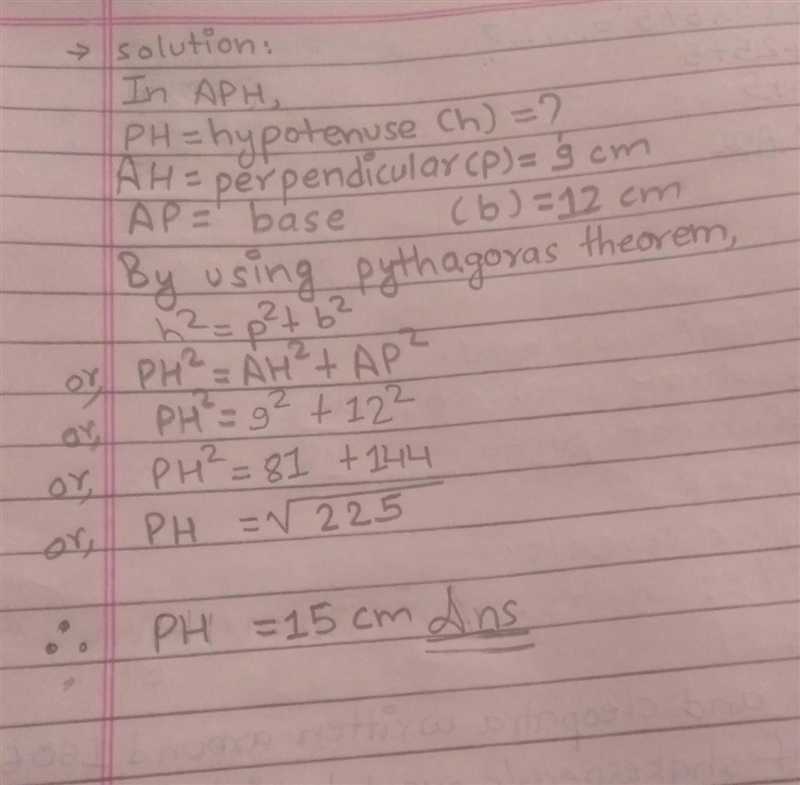 → solution:
In APH,
PH = hypotenuse (h) = ?
AH = perpendicular (p) = 9 cm
AP = base (b) = 12 cm
By using pythagoras theorem,
h² = p² + b²
or, PH² = AH² + AP²
or, PH² = 9² + 12²
or, PH² = 81 + 144
or, PH = √225
∴ PH = 15 cm Ans
and cleopatra written around